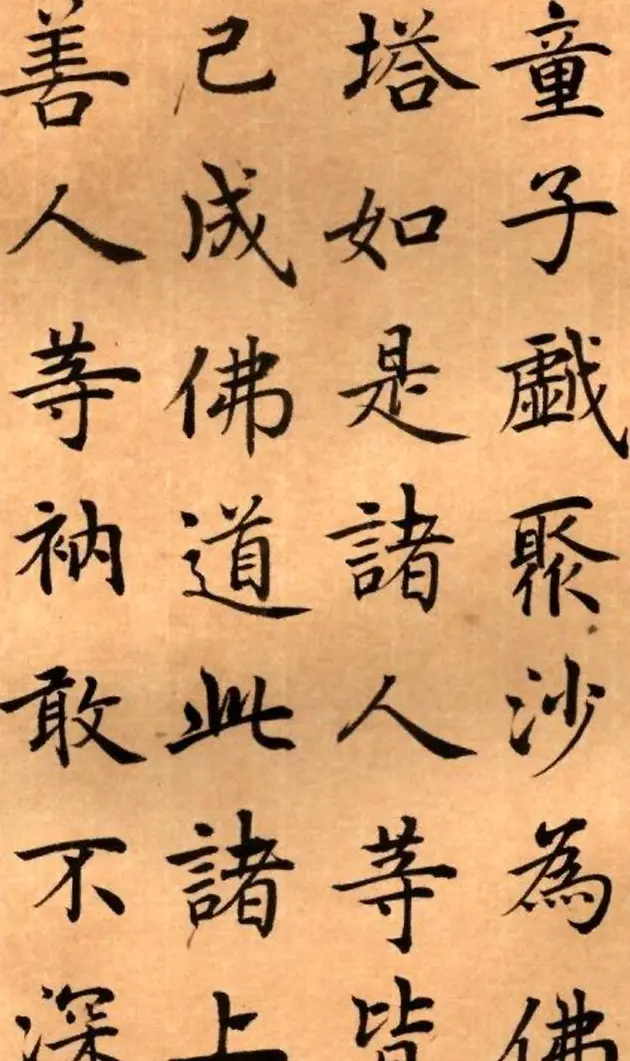 童子戲聚沙為佛
塔如是諸人等皆
已成佛道此諸上
善人等衲敢不深